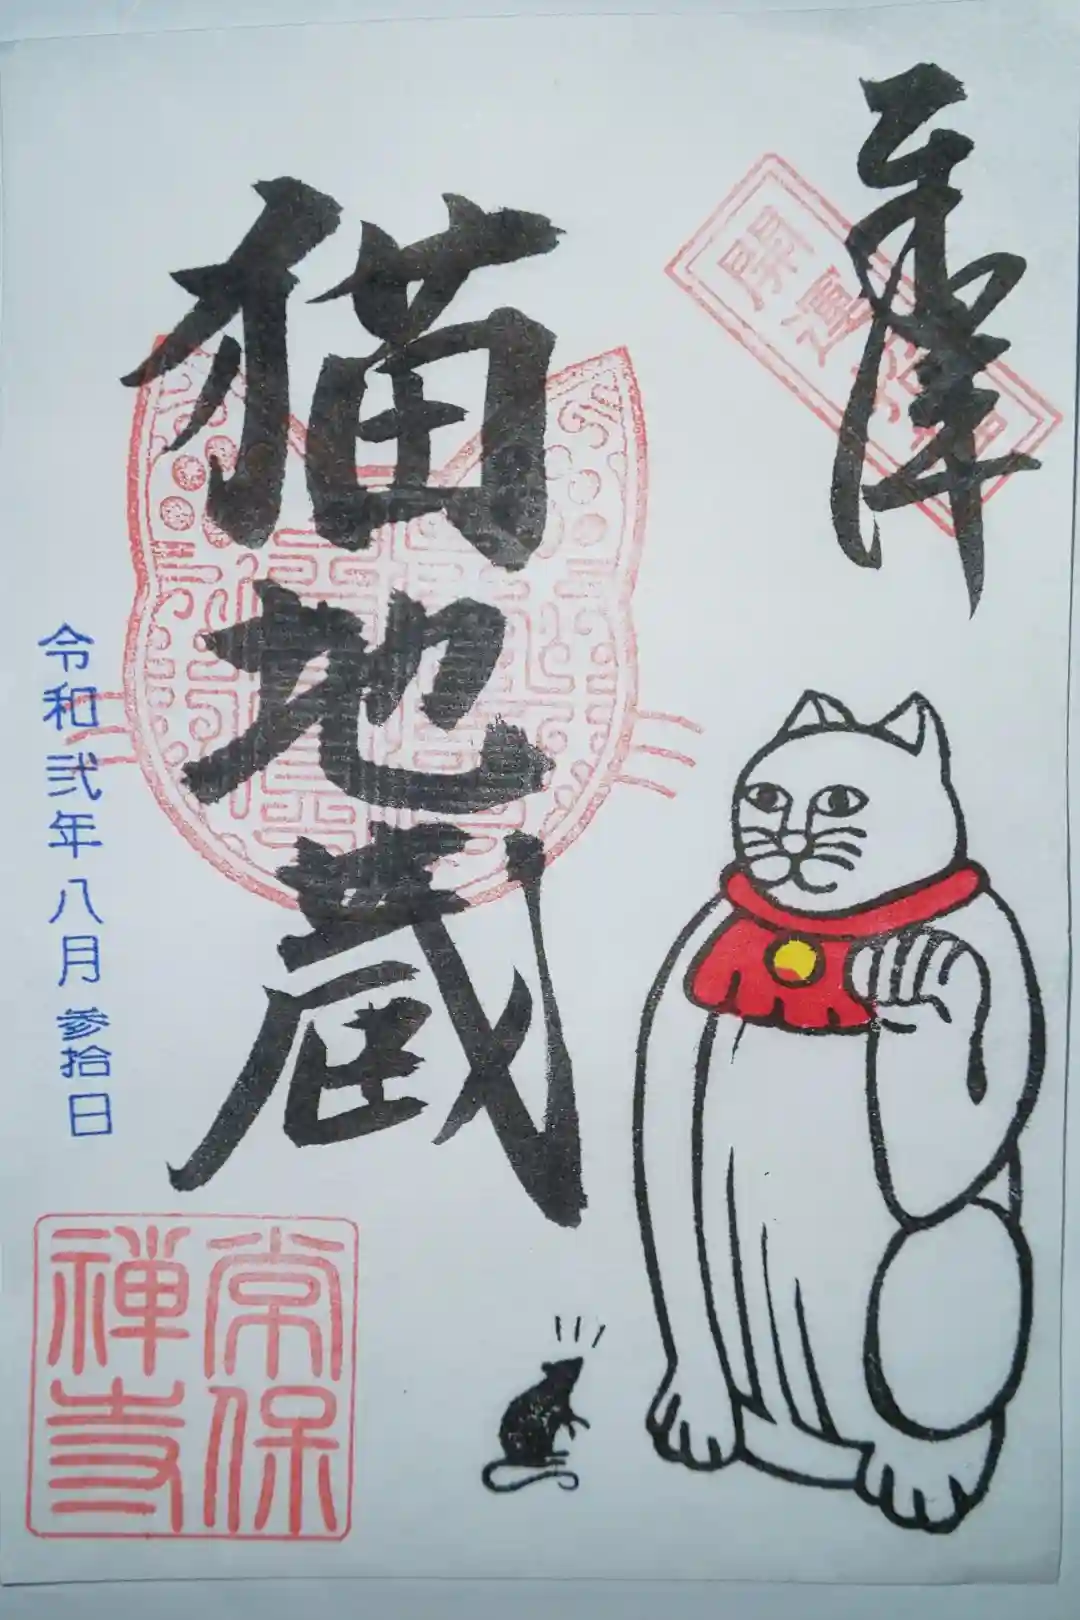 奉拝
開運招福
猫地蔵
令和弐年八月参拾日
常保
禅寺